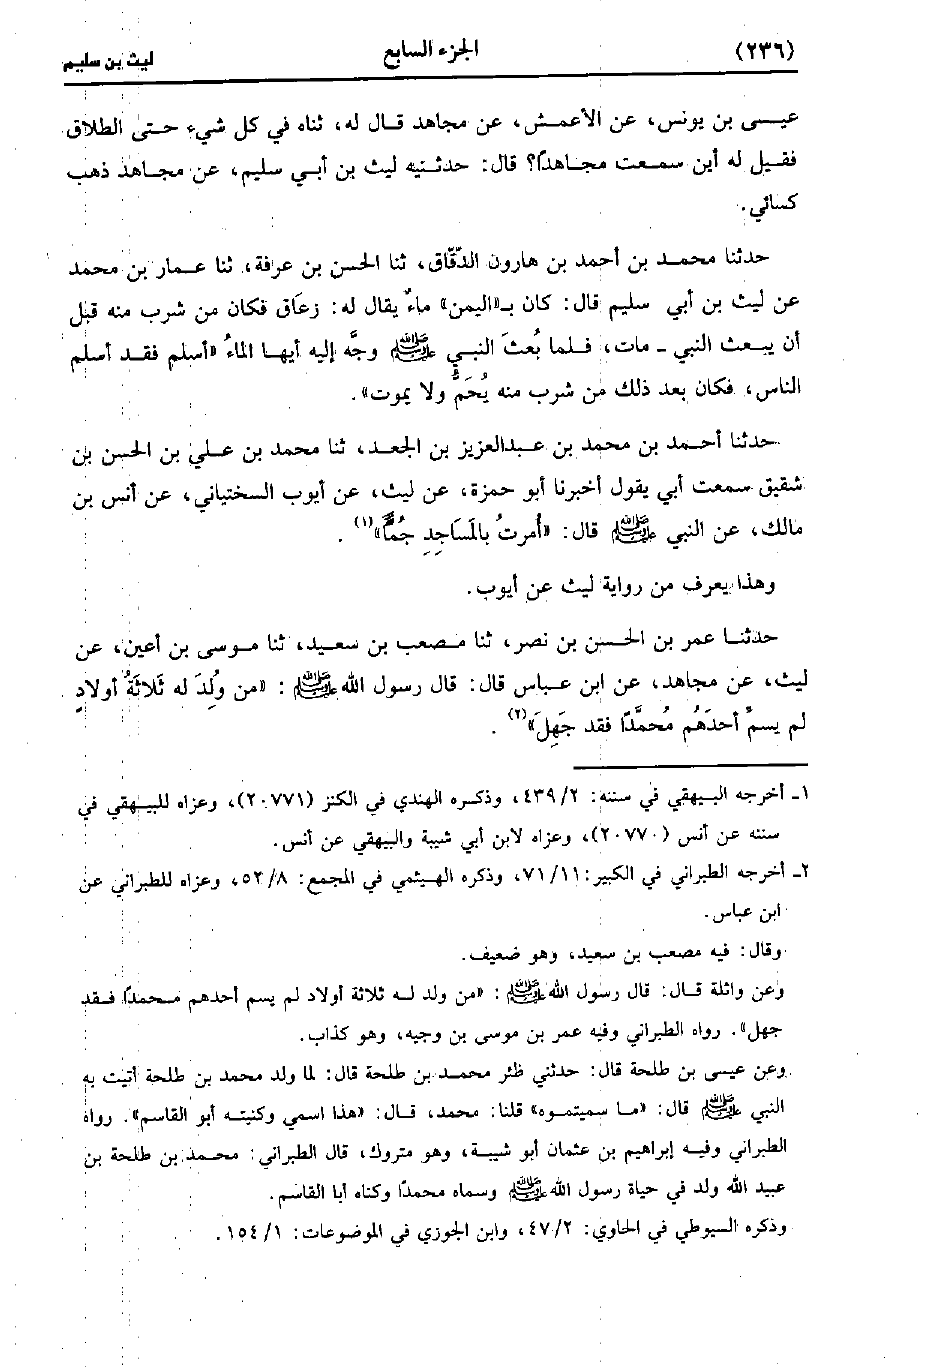 (٢٣٦) الجزء السابع ليث بن سليم
عيسى بن يونس، عن الأعمش، عن مجاهد قال له، ثناه في كل شيء حتى الطلاق
فقيل له أين سمعت مجاهدًا؟ قال: حدثنيه ليث بن أبي سليم، عن مجاهد ذهب
كسائي.
حدثنا محمد بن أحمد بن هارون الدّقّاق، ثنا الحسن بن عرفة، ثنا عمار بن محمد
عن ليث بن أبي سليم قال: كان بـ«اليمن» ماءٌ يقال له: زعَاق فكان من شرب منه قبل
أن يبعث النبي ـ مات، فلما بُعثَ النبي ﷺ وجَّه إليه أيها الماءُ «أسلم فقد أسلم
الناس، فكان بعد ذلك من شرب منه يُحَمُّ ولا يموت».
حدثنا أحمد بن محمد بن عبدالعزيز بن الجعد، ثنا محمد بن علي بن الحسن بن
شقيق سمعت أبي يقول أخبرنا أبو حمزة، عن ليث، عن أيوب السختياني، عن أنس بن
مالك، عن النبي ﷺ قال: «أُمرتُ بالمَسَاجِدِ جُمًّا»(١).
وهذا يعرف من رواية ليث عن أيوب.
حدثنا عمر بن الحسن بن نصر، ثنا مصعب بن سعيد، ثنا موسى بن أعين، عن
ليث، عن مجاهد، عن ابن عباس قال: قال رسول الله ﷺ : «من وُلِدَ له ثَلاثَةُ أولادٍ
لم يسمِّ أحدَهُم مُحمَّدًا فقد جَهِلَ»(٢).
١ـ أخرجه البيهقي في سننه: ٤٣٩/٢، وذكره الهندي في الكنز (٢٠٧٧١)، وعزاه للبيهقي في
سننه عن أنس (٢٠٧٧٠)، وعزاه لابن أبي شيبة والبيهقي عن أنس.
٢ـ أخرجه الطبراني في الكبير: ٧١/١١، وذكره الهيثمي في المجمع: ٥٢/٨، وعزاه للطبراني عن
ابن عباس.
وقال: فيه مصعب بن سعيد، وهو ضعيف.
وعن واثلة قال: قال رسول الله ﷺ : «من ولد له ثلاثة أولاد لم يسم أحدهم محمدًا فقد
جهل». رواه الطبراني وفيه عمر بن موسى بن وجيه، وهو كذاب.
وعن عيسى بن طلحة قال: حدثني ظئر محمد بن طلحة قال: لما ولد محمد بن طلحة أتيت به
النبي ﷺ قال: «ما سميتموه» قلنا: محمد، قال: «هذا اسمي وكنيته أبو القاسم». رواه
الطبراني وفيه إبراهيم بن عثمان أبو شيبة، وهو متروك، قال الطبراني: محمد بن طلحة بن
عبيد الله ولد في حياة رسول الله ﷺ وسماه محمدًا وكناه أبا القاسم.
وذكره السيوطي في الحاوي: ٤٧/٢، وابن الجوزي في الموضوعات: ١٥٤/١.